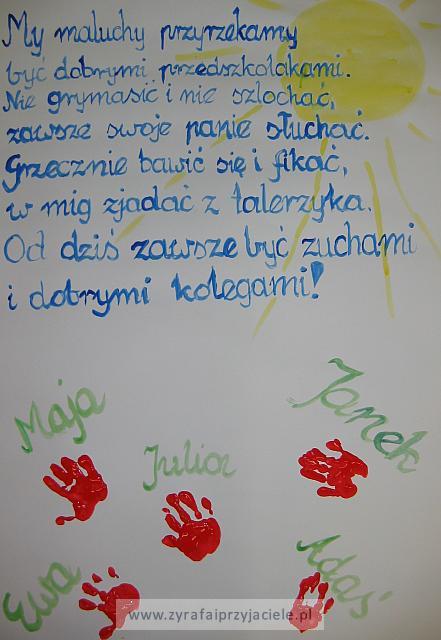 My maluchy przyrzekamy
być dobrymi przedszkolakami.
Nie grymasić i nie szlochać,
zawsze swoje panie słuchać.
Grzecznie bawić się i fikać,
w mig zjadać z talerzyka.
Od dziś zawsze być zuchami
i dobrymi kolegami!
Maja
Janek
Julia
Ewa
Adaś
www.zyrafaiprzyjaciele.pl